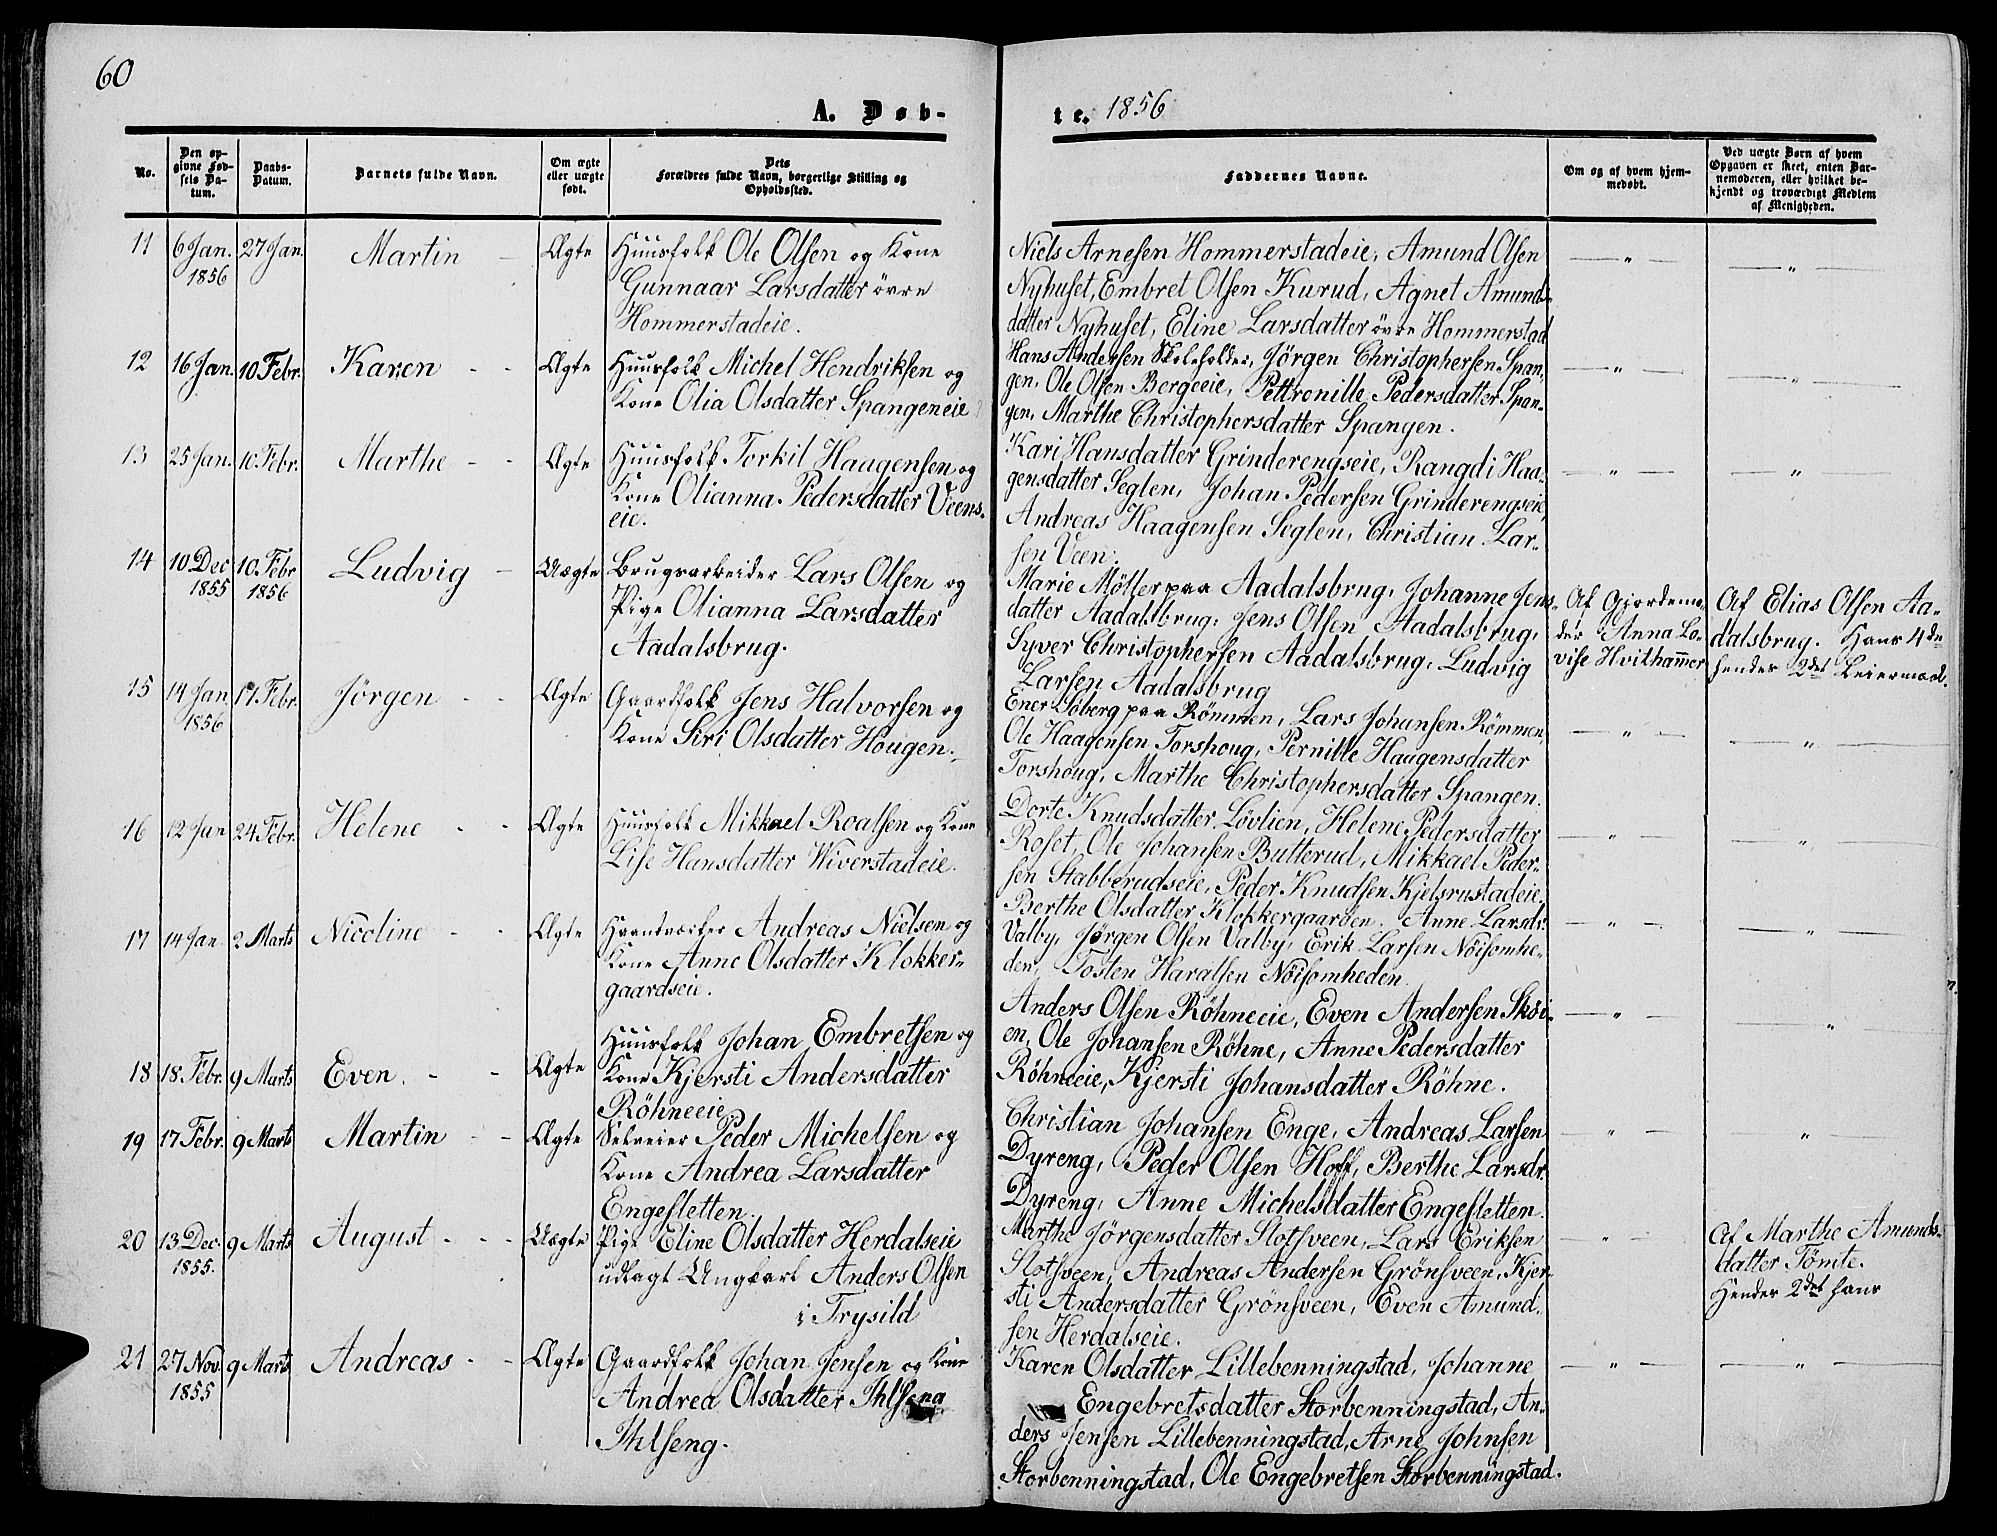 60
A. Døb-
te. 1856
No.
Den op-
givne Fød-
sels Da-
tum.
Daabs-
Datum.
Barnets fulde Navn.
Om ægte
eller uægte
født.
Dets
Forældres fulde Navn, borgerlige Stilling og
Opholdssted.
Faddernes Navne.
Om og af hvem hjem-
medøbt.
Ved uægte Børn af hvem
Opgaven er skeet, enten Bar-
nemoderen, eller hvilket be-
kjendt og troværdigt Medlem
af Menigheden.
11 6 Jan. 27 Jan. Martin - Ægte Huusfolk Ole Olsen og Kone
1856 Gunnaar Larsdatter övre
Hommerstadeie.
Niels Arnesen Hommerstadeie, Amund Olsen
Nyhuset, Embret Olsen Kurud, Agnet Amunds-
datter Nyhuset, Eline Larsdatter övre Hommerstad
— " — — " —
12 16 Jan. 10 Febr. Karen - - Ægte Huusfolk Michel Hendriksen og
Kone Olia Olsdatter Spangeneie
Hans Andersen Skoleholder, Jörgen Christophersen Span-
gen, Ole Olsen Bergeeie, Pettronille Pedersdatter Span-
gen, Marthe Christophersdatter Spangen.
— " — — " —
13 25 Jan. 10 Febr. Marthe - - Ægte Huusfolk Torkil Haagensen og
Kone Olianna Pedersdatter Veens-
eie.
Kari Hansdatter Grinderengseie, Rangdi Haa-
gensdatter Seglen, Johan Pedersen Grinderengseie,
Andreas Haagensen Seglen, Christian Lar-
sen Veen.
— " — — " —
14 10 Dec 10 Febr Ludvig - Uægte Brugsarbeider Lars Olsen og
1855 1856 Pige Olianna Larsdatter
Aadalsbrug.
Marie Möller paa Aadalsbrug, Johanne Jens-
datter Aadalsbrug, Jens Olsen Aadalsbrug,
Syver Christophersen Aadalsbrug, Ludvig
Larsen Aadalsbrug
Af Gjordemo-
der Anna Lo-
vise Hvithammer
Af Elias Olsen Aa-
dalsbrug. Hans 4de
hendes 2det Leiermaal.
15 14 Jan 17 Febr. Jörgen - - Ægte Gaardfolk Jens Halvorsen og
1856 Kone Siri Olsdatter Hougen.
Ener Söberg paa Römmen, Lars Johansen Römmen,
Ole Haagensen Torshoug, Pernille Haagensdatter
Torshoug, Marthe Christophersdatter Spangen.
— " — — " —
16 12 Jan 24 Febr. Helene - - Ægte Huusfolk Mikkael Roalsen og Kone
Lise Hansdatter Wiverstadeie.
Dorte Knudsdatter Lövlien, Helene Pedersdatter
Roset, Ole Johansen Butterud, Mikkael Peder-
sen Stabberudseie, Peder Knudsen Kjelsrustadeie.
— " — — " —
17 14 Jan 2 Marts Nicoline - - Ægte Haandværker Andreas Nielsen og
Kone Anne Olsdatter Klokker-
gaardseie.
Berthe Olsdatter Klokkergaarden. Anne Larsdr.
Valby, Jørgen Olsen Valby, Erik Larsen Nöisomhe-
den, Tosten Haralsen Nöisomheden.
— " — — " —
18 18 Febr. 9 Marts Even. - - Ægte Huusfolk Johan Embretsen og
Kone Kjersti Andersdatter
Röhneeie
Anders Olsen Röhneeie, Even Andersen Sköi-
en, Ole Johansen Röhne, Anne Pedersdatter
Röhneeie, Kjersti Johansdatter Röhne.
— " — — " —
19 17 Febr. 9 Marts Martin - - Ægte Selveier Peder Michelsen og
Kone Andrea Larsdatter
Engesletten.
Christian Johansen Enge, Andreas Larsen
Dyreng, Peder Olsen Hoff, Berthe Larsdr.
Dyreng, Anne Michelsdatter Engesletten.
— " — — " —
20 13 Dec. 9 Marts August - - - Uægte Pige Eline Olsdatter Herdalseie
1855. udlagt Ungkarl Anders Olsen
i Trysild
Marthe Jörgensdatter Slotsveen, Lars Eriksen
Slotsveen, Andreas Andersen Grönsveen, Kjer-
sti Andersdatter Grönsveen, Even Amund-
sen Herdalseie.
— " —
Af Marthe Amunds-
datter Tömte.
Hendes 2det hans
21 27 Nov. 9 Marts Andreas - - Ægte Gaardfolk Johan Jensen og Kone
1855 Andrea Olsdatter
Ihlseng.
Karen Olsdatter Lillebenningstad, Johanne
Engebretsdatter Storbenningstad, An-
ders Jensen Lillebenningstad, Arne Johnsen
Storbenningstad, Ole Engebretsen Storbenningstad.
— " — — " —